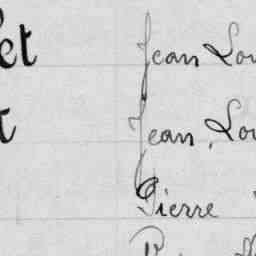 et Jean Lou
t Jean, Lou
Pierre